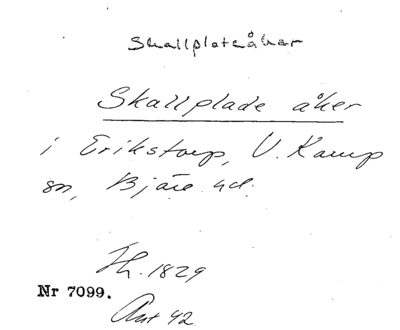 Skallplatsåkar
Skallplade åker
i Erikstorp, V. Karup
sn, Bjäre hd.
Jh. 1829
Nr 7099.
Akt 42